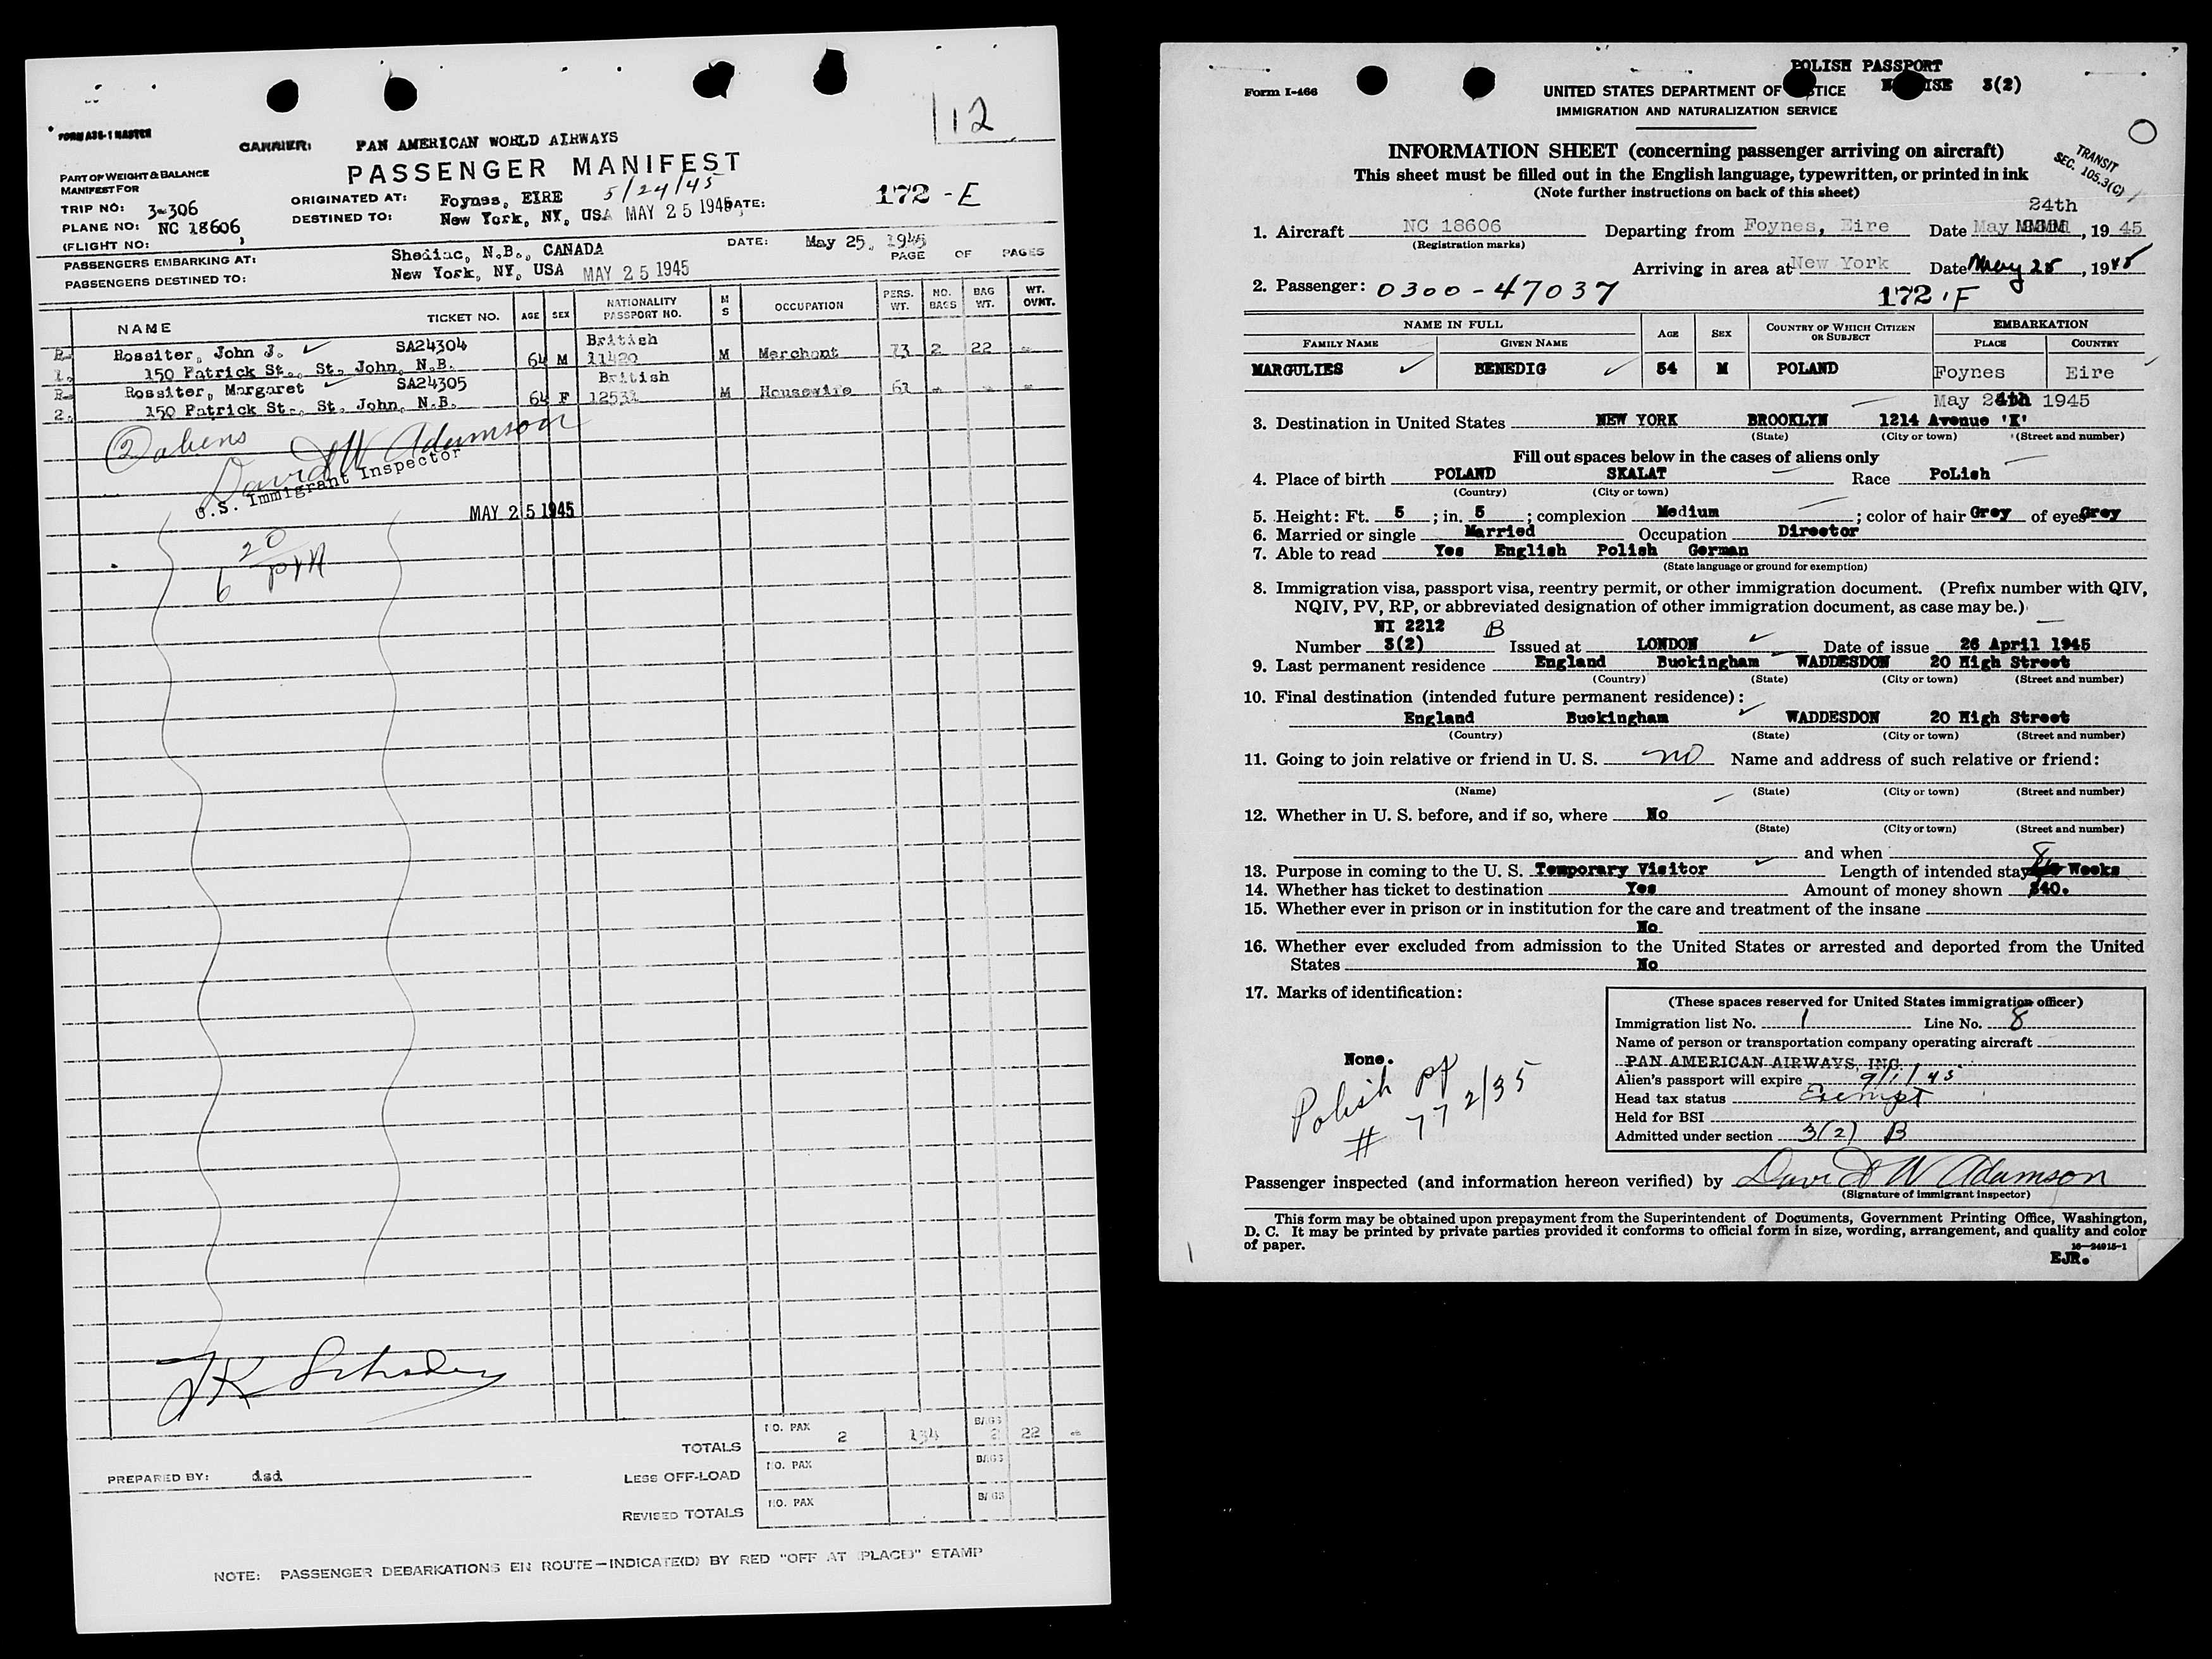 12
FORM A35-1 MASTER
CARRIER: PAN AMERICAN WORLD AIRWAYS
PASSENGER MANIFEST
PART OF WEIGHT & BALANCE
MANIFEST FOR
TRIP NO: 3-306
PLANE NO: NC 18606
(FLIGHT NO: )
ORIGINATED AT: Foynes, EIRE 5/24/45
DESTINED TO: New York, NY, USA MAY 25 1945 DATE:
172 - E
PASSENGERS EMBARKING AT: Shediac, N.B., CANADA DATE: May 25, 1945
PASSENGERS DESTINED TO: New York, NY, USA MAY 25 1945 PAGE OF PAGES
NAME TICKET NO. AGE SEX NATIONALITY PASSPORT NO. M S OCCUPATION PERS. WT. NO. BAGS BAG WT. WT. OVNT.
R- Rossiter, John J. SA24304 British
1. 150 Patrick St., St. John, N.B. 64 M 11420 M Merchant 73 2 22 -
R- Rossiter, Margaret SA24305 British
2. 150 Patrick St., St. John, N.B. 64 F M Housewife 61 - - -
(2) aliens
David W Adamson
U.S. Immigrant Inspector
MAY 25 1945
6 20 PM
JK
TOTALS NO. PAX 2 134 BAGS 2 22 -
PREPARED BY: dsd
LESS OFF-LOAD NO. PAX BAGS
REVISED TOTALS NO. PAX BAGS
NOTE: PASSENGER DEBARKATIONS EN ROUTE—INDICATE(D) BY RED "OFF AT (PLACE)" STAMP
POLISH PASSPORT
3(2)
Form I-466
UNITED STATES DEPARTMENT OF JUSTICE
IMMIGRATION AND NATURALIZATION SERVICE
TRANSIT
SEC. 105.3(C)
INFORMATION SHEET (concerning passenger arriving on aircraft)
This sheet must be filled out in the English language, typewritten, or printed in ink
(Note further instructions on back of this sheet)
24th
1. Aircraft NC 18606 Departing from Foynes, Eire Date May , 19 45
(Registration marks)
Arriving in area at New York Date May 25, 1945
2. Passenger: 0300-47037 172 , F
NAME IN FULL AGE SEX COUNTRY OF WHICH CITIZEN OR SUBJECT EMBARKATION
FAMILY NAME GIVEN NAME PLACE COUNTRY
MARGULIES BENEDIG 54 M POLAND Foynes Eire
May 24th 1945
3. Destination in United States NEW YORK BROOKLYN 1214 Avenue 'K'
(State) (City or town) (Street and number)
Fill out spaces below in the cases of aliens only
4. Place of birth POLAND SKALAT Race PoLish
(Country) (City or town)
5. Height: Ft. 5 ; in. 5 ; complexion Medium ; color of hair Grey of eyes Grey
6. Married or single Married Occupation Director
7. Able to read Yes English Polish German
(State language or ground for exemption)
8. Immigration visa, passport visa, reentry permit, or other immigration document. (Prefix number with QIV,
NQIV, PV, RP, or abbreviated designation of other immigration document, as case may be.)
NI 2212 B
Number 3(2) Issued at LONDON Date of issue 26 April 1945
9. Last permanent residence England Buckingham WADDESDON 20 High Street
(Country) (State) (City or town) (Street and number)
10. Final destination (intended future permanent residence):
England Buckingham WADDESDON 20 High Street
(Country) (State) (City or town) (Street and number)
11. Going to join relative or friend in U. S. no Name and address of such relative or friend:
(Name) (State) (City or town) (Street and number)
12. Whether in U. S. before, and if so, where No
(State) (City or town) (Street and number)
and when
13. Purpose in coming to the U. S. Temporary Visitor Length of intended stay 8 Weeks
14. Whether has ticket to destination Yes Amount of money shown $40.
15. Whether ever in prison or in institution for the care and treatment of the insane
No
16. Whether ever excluded from admission to the United States or arrested and deported from the United
States No
17. Marks of identification:
None.
Polish pp
# 772/35
(These spaces reserved for United States immigration officer)
Immigration list No. 1 Line No. 8
Name of person or transportation company operating aircraft
PAN AMERICAN AIRWAYS, INC.
Alien's passport will expire 9/1/45
Head tax status Exempt
Held for BSI
Admitted under section 3(2) B
Passenger inspected (and information hereon verified) by David W Adamson
(Signature of immigrant inspector)
This form may be obtained upon prepayment from the Superintendent of Documents, Government Printing Office, Washington,
D. C. It may be printed by private parties provided it conforms to official form in size, wording, arrangement, and quality and color
of paper.
16—24915-1
EJR.